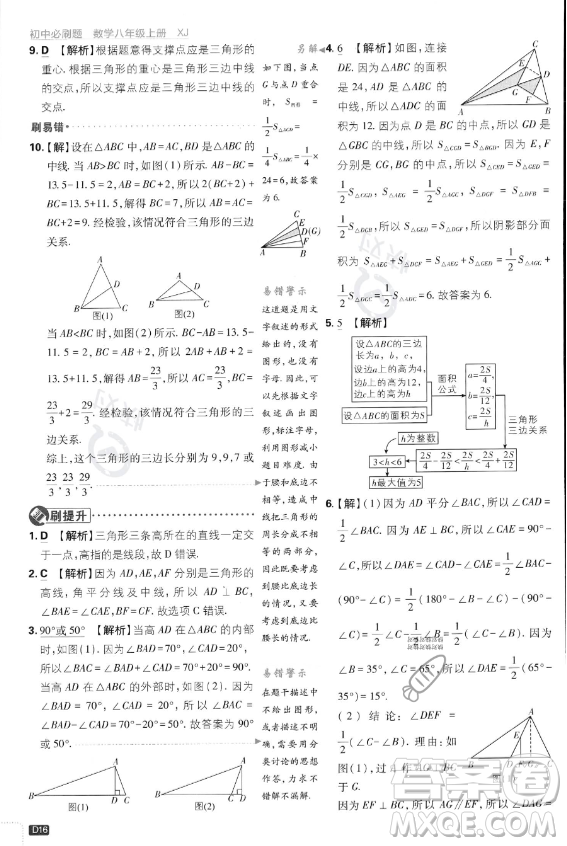 初中必刷题 数学八年级上册 XJ
9. D 【解析】根据题意得支撑点应是三角形的
重心. 根据三角形的重心是三角形三边中线
的交点,所以支撑点应是三角形三边中线的
交点.
刷易错
10. 【解】设在△ABC 中,AB=AC,BD是△ABC 的
中线. 当 AB>BC 时,如图(1). 所以 AB-BC=
13.5-11.5=2,AB+AC+BC=2AB+BC=
13.5+11.5,解得 AB=9,BC=7,所以 AB=AC=
BC+2=9. 经检验,该情况符合三角形的三边
关系.
A
D
B C
图(1)
A
D
B C
图(2)
当 AB<BC 时,如图(2)所示. BC-AB=13.5-
11.5=2,AB+AC+BC=2AB+BC=
13.5+11.5,解得 AB=23/3,所以 AB=AC=23/3,BC=
23/3+2=29/3. 经检验,该情况符合三角形的三
边关系.
综上,这个三角形的三边长分别为9,9,7或
23/3,23/3,29/3.
刷提升
1. D 【解析】三角形三条高所在的直线一定交
于一点,高指的是线段,故 D 错误.
2. C 【解析】因为 AD,AE,AF 分别是三角形的
高线,角平分线及中线,所以 AD⊥BC,
∠BAE=∠CAE,BF=CF. 故选项 C 错误.
3. 90°或50° 【解析】当高 AD 在△ABC 的内部
时,如图(1). 因为∠BAD=70°,∠CAD=20°,
所以∠BAC=∠BAD+∠CAD=70°+20°=90°.
当高 AD 在△ABC 的外部时,如图(2). 因为
∠BAD=70°,∠CAD=20°,所以∠BAC=
∠BAD-∠CAD=70°-20°=50°. 故答案为90°
或50°.
A
B D C
图(1)
A
B C D
图(2)
易解
如下图,当
点G与点
D重合
时,S阴影=
1/2S△ACD=
1/4S△ABC=1/4×
24=6,故答案
为6.
C
D(G)
E
F
A B
易错警示
这道题是用文
字叙述的形式
给出的,没有
图形,也没有
字母. 因此,可
以先根据文字
叙述画出图
形,标注字母,
利用图形减小
题目难度. 由
于腰和底边不
相等,造成中
线把三角形的
周长分成不相
等的两部分,
因此需要考虑
到腰比底边长
的情况,又需
要考虑底边比
腰长的情况.
易错警示
在题干描述中
不给出图形,
在画图形时,
要注意图形的
多样性,用分
类讨论的思想
思考,作答.
4. 6 【解析】如图,连接
DE. 因为△ABC 的面积
是24,AD 是△ABC 的
中线,所以△ACD 的面
积为12. 因为 DE 为
△GBC 的中线,所以
S△CED=S△BED. 因为 E,F
分别是 CG,BG 的中点,所以 S△GED=
1/2S△CGD,S△AEG=1/2S△AGC,S△GDF=S△DFB=
1/2S△DGB,所以 S△GED=S△GDF,所以阴影部分面
积为 S△AEG+S△GED=1/2S△AGC+1/2S△CGD=
1/2S△ADC=6. 故答案为6.
5. 5 【解析】
设△ABC的三边
长为a,b,c,
设边a上的高为4,
边b上的高为12,
边c上的高为h
设△ABC的面积为S
面积
公式
a=2S/4
b=2S/12
c=2S/h
三角形
三边关系
2S/4-2S/12<2S/h<2S/4+2S/12
3<h<6
h为整数
h最大值为5
6. 【解】(1)因为 AD 平分∠BAC,所以∠CAD=
1/2∠BAC. 因为 AE⊥BC,所以∠CAE=90°-
∠C,所以∠DAE=∠CAD-∠CAE=1/2∠BAC-
(90°-∠C)=1/2(180°-∠B-∠C)-(90°-
∠C)=1/2∠C-1/2∠B=1/2(∠C-∠B). 因为
∠B=35°,∠C=65°,所以∠DAE=1/2×30°=
15°.
(2) 结论:∠DEF=
1/2(∠C-∠B). 理由:如
图(1),过点 A 作
AG⊥BC 于点 G.
因为 EF⊥BC,所以 AG∥EF,所以∠DAG=
D16